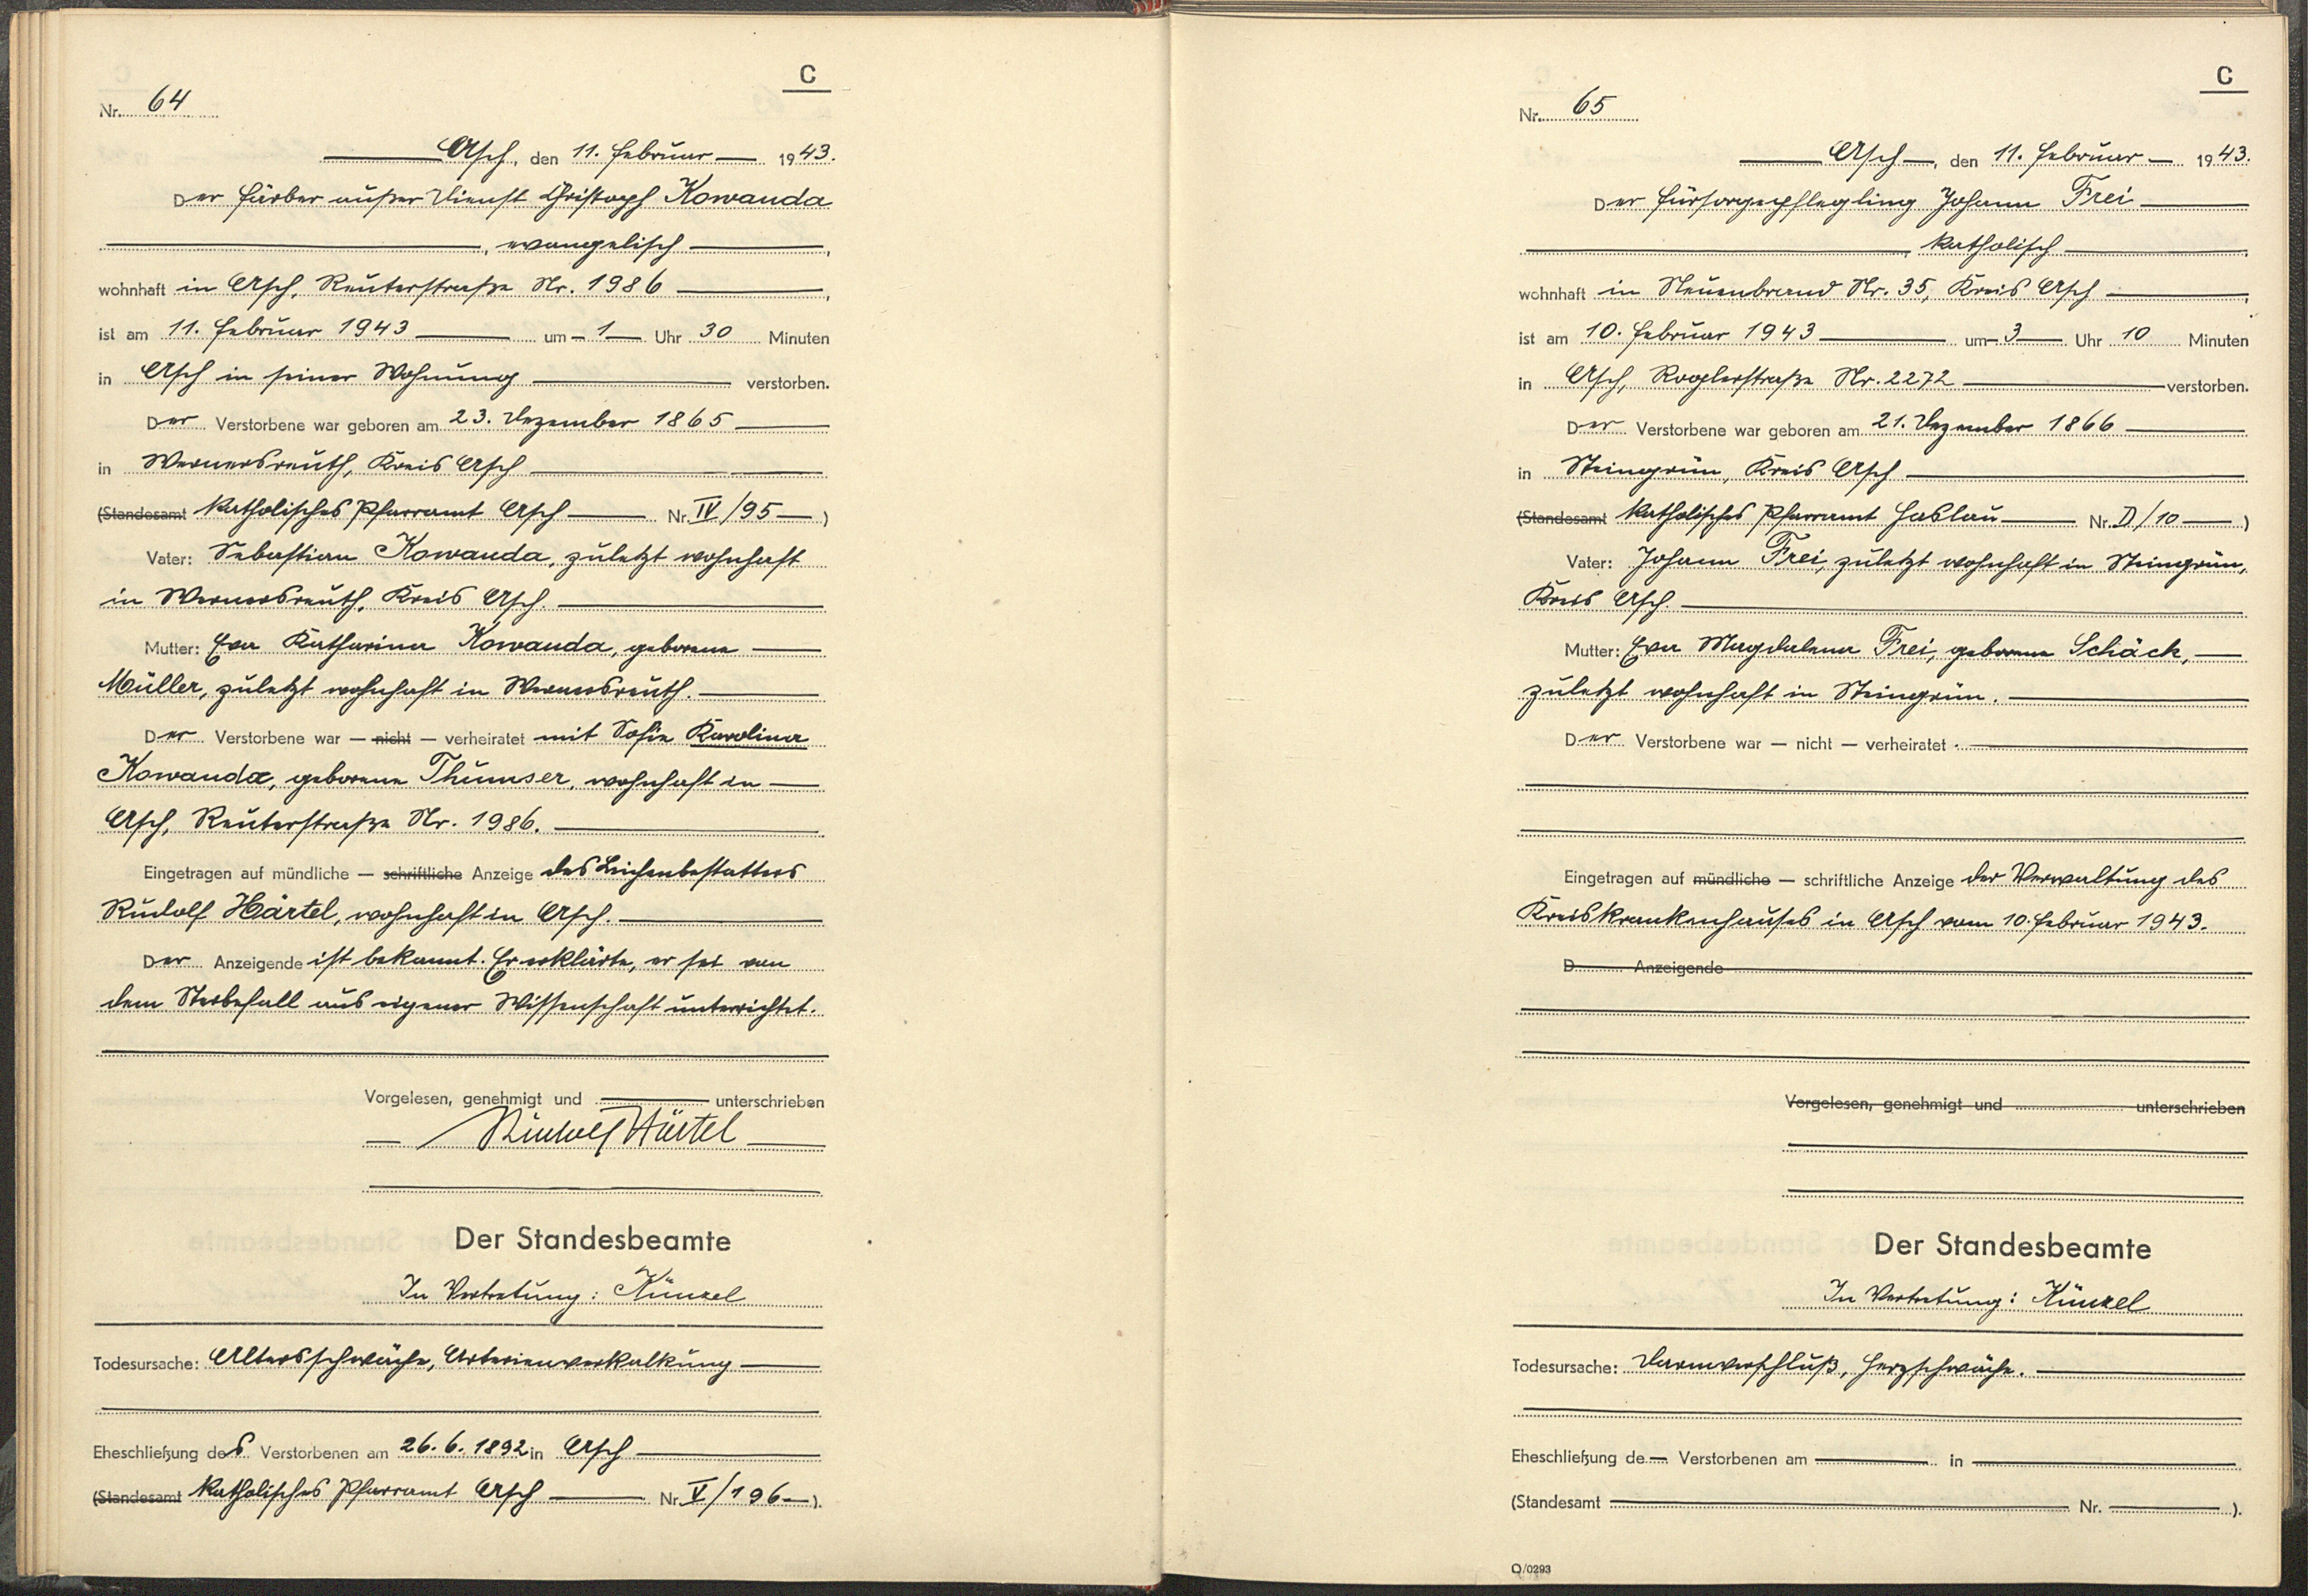 C
Nr. 64
Asch, den 11. Februar 1943.
Der Färber außer Dienst Christoph Kowanda
, evangelisch ,
wohnhaft in Asch, Reuterstraße Nr. 1986 ,
ist am 11. Februar 1943 um 1 Uhr 30 Minuten
in Asch in seiner Wohnung verstorben.
Der Verstorbene war geboren am 23. Dezember 1865
in Wernersreuth, Kreis Asch
(Standesamt katholisches Pfarramt Asch Nr. IV/95 )
Vater: Sebastian Kowanda, zuletzt wohnhaft
in Wernersreuth, Kreis Asch.
Mutter: Eva Katharina Kowanda, geborene
Müller, zuletzt wohnhaft in Wernersreuth.
Der Verstorbene war — nicht — verheiratet mit Sofie Karolina
Kowanda, geborene Thumser, wohnhaft in
Asch, Reuterstraße Nr. 1986.
Eingetragen auf mündliche — schriftliche Anzeige des Leichenbestatters
Rudolf Härtel, wohnhaft in Asch.
Der Anzeigende ist bekannt. Er erklärte, er sei von
dem Sterbefall aus eigener Wissenschaft unterrichtet.
Vorgelesen, genehmigt und unterschrieben
Rudolf Härtel
Der Standesbeamte
In Vertretung: Künzel
Todesursache: Altersschwäche, Arterienverkalkung
Eheschließung des Verstorbenen am 26.6.1892 in Asch
(Standesamt katholisches Pfarramt Asch Nr. V/196 ).
C
Nr. 65
Asch, den 11. Februar 1943.
Der Fürsorgepflegling Johann Frei
, katholisch ,
wohnhaft in Neuenbrand Nr. 35, Kreis Asch ,
ist am 10. Februar 1943 um 3 Uhr 10 Minuten
in Asch, Roglerstraße Nr. 2272 verstorben.
Der Verstorbene war geboren am 21. Dezember 1866
in Steingrün, Kreis Asch
(Standesamt katholisches Pfarramt Haslau Nr. D/10 )
Vater: Johann Frei, zuletzt wohnhaft in Steingrün,
Kreis Asch.
Mutter: Eva Magdalena Frei, geborene Schäck,
zuletzt wohnhaft in Steingrün.
Der Verstorbene war — nicht — verheiratet.
Eingetragen auf mündliche — schriftliche Anzeige der Verwaltung des
Kreiskrankenhauses in Asch vom 10. Februar 1943.
D Anzeigende
Vorgelesen, genehmigt und unterschrieben
Der Standesbeamte
In Vertretung: Künzel
Todesursache: Darmverschluß, Herzschwäche.
Eheschließung de Verstorbenen am in
(Standesamt Nr. ).
O/0293